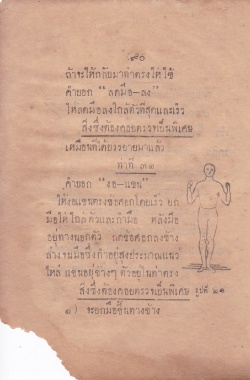 ๙๐
ถ้าจะให้กลับมาท่าตรงให้ใช้
คำบอก “ลดมือ-ลง”
ให้ลดมือลงใกล้ตัวที่สุดและเร็ว
สิ่งซึ่งต้องคอยตรวจเป็นพิเศษ
เหมือนที่ได้บรรยายมาแล้ว
ท่าที่ ๓๑
คำบอก “งอ-แขน”
ให้งอแขนตรงข้อศอกโดยเร็ว ยก
มือให้ใกล้ตัวและกำมือ หลังมือ
อยู่ทางนอกตัว กดข้อศอกลงข้าง
ล่างจนมือซึ่งกำอยู่สูงประมาณแนว
ไหล่ แขนอยู่ข้างๆ ตัวอยู่ในท่าตรง
สิ่งซึ่งต้องคอยตรวจเป็นพิเศษ
รูปที่ ๒๑
๑) จะยกมือขึ้นทางข้าง